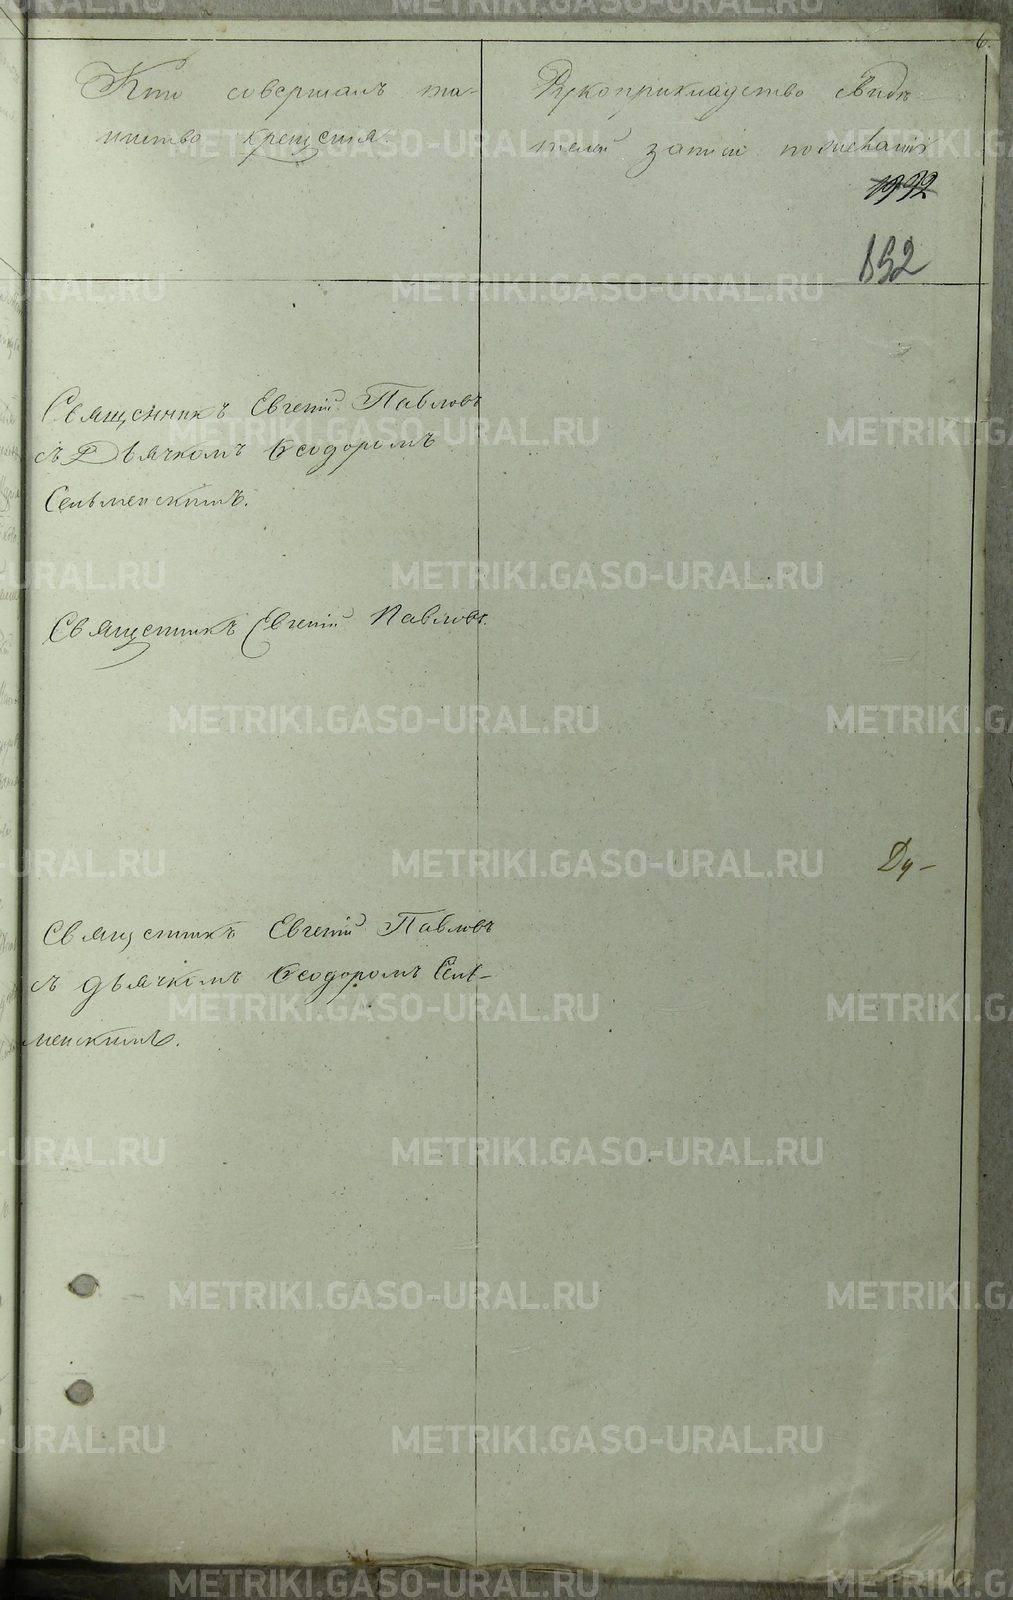 6.
Кто совершалъ та-
инство крещенія.
Рукоприкладство свидѣ-
телей записи по желанію
1992
192
Священникъ Евгеній Павловъ
съ Дьячкомъ Ѳеодоромъ
Сельменскимъ.
Священникъ Евгеній Павловъ.
Ду-
Священникъ Евгеній Павловъ
съ дьячкомъ Ѳеодоромъ Сель-
менскимъ.
METRIKI.GASO-URAL.RU